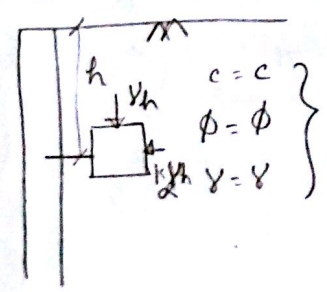 h
γh
kγh
2
c = c
φ = φ
γ = γ